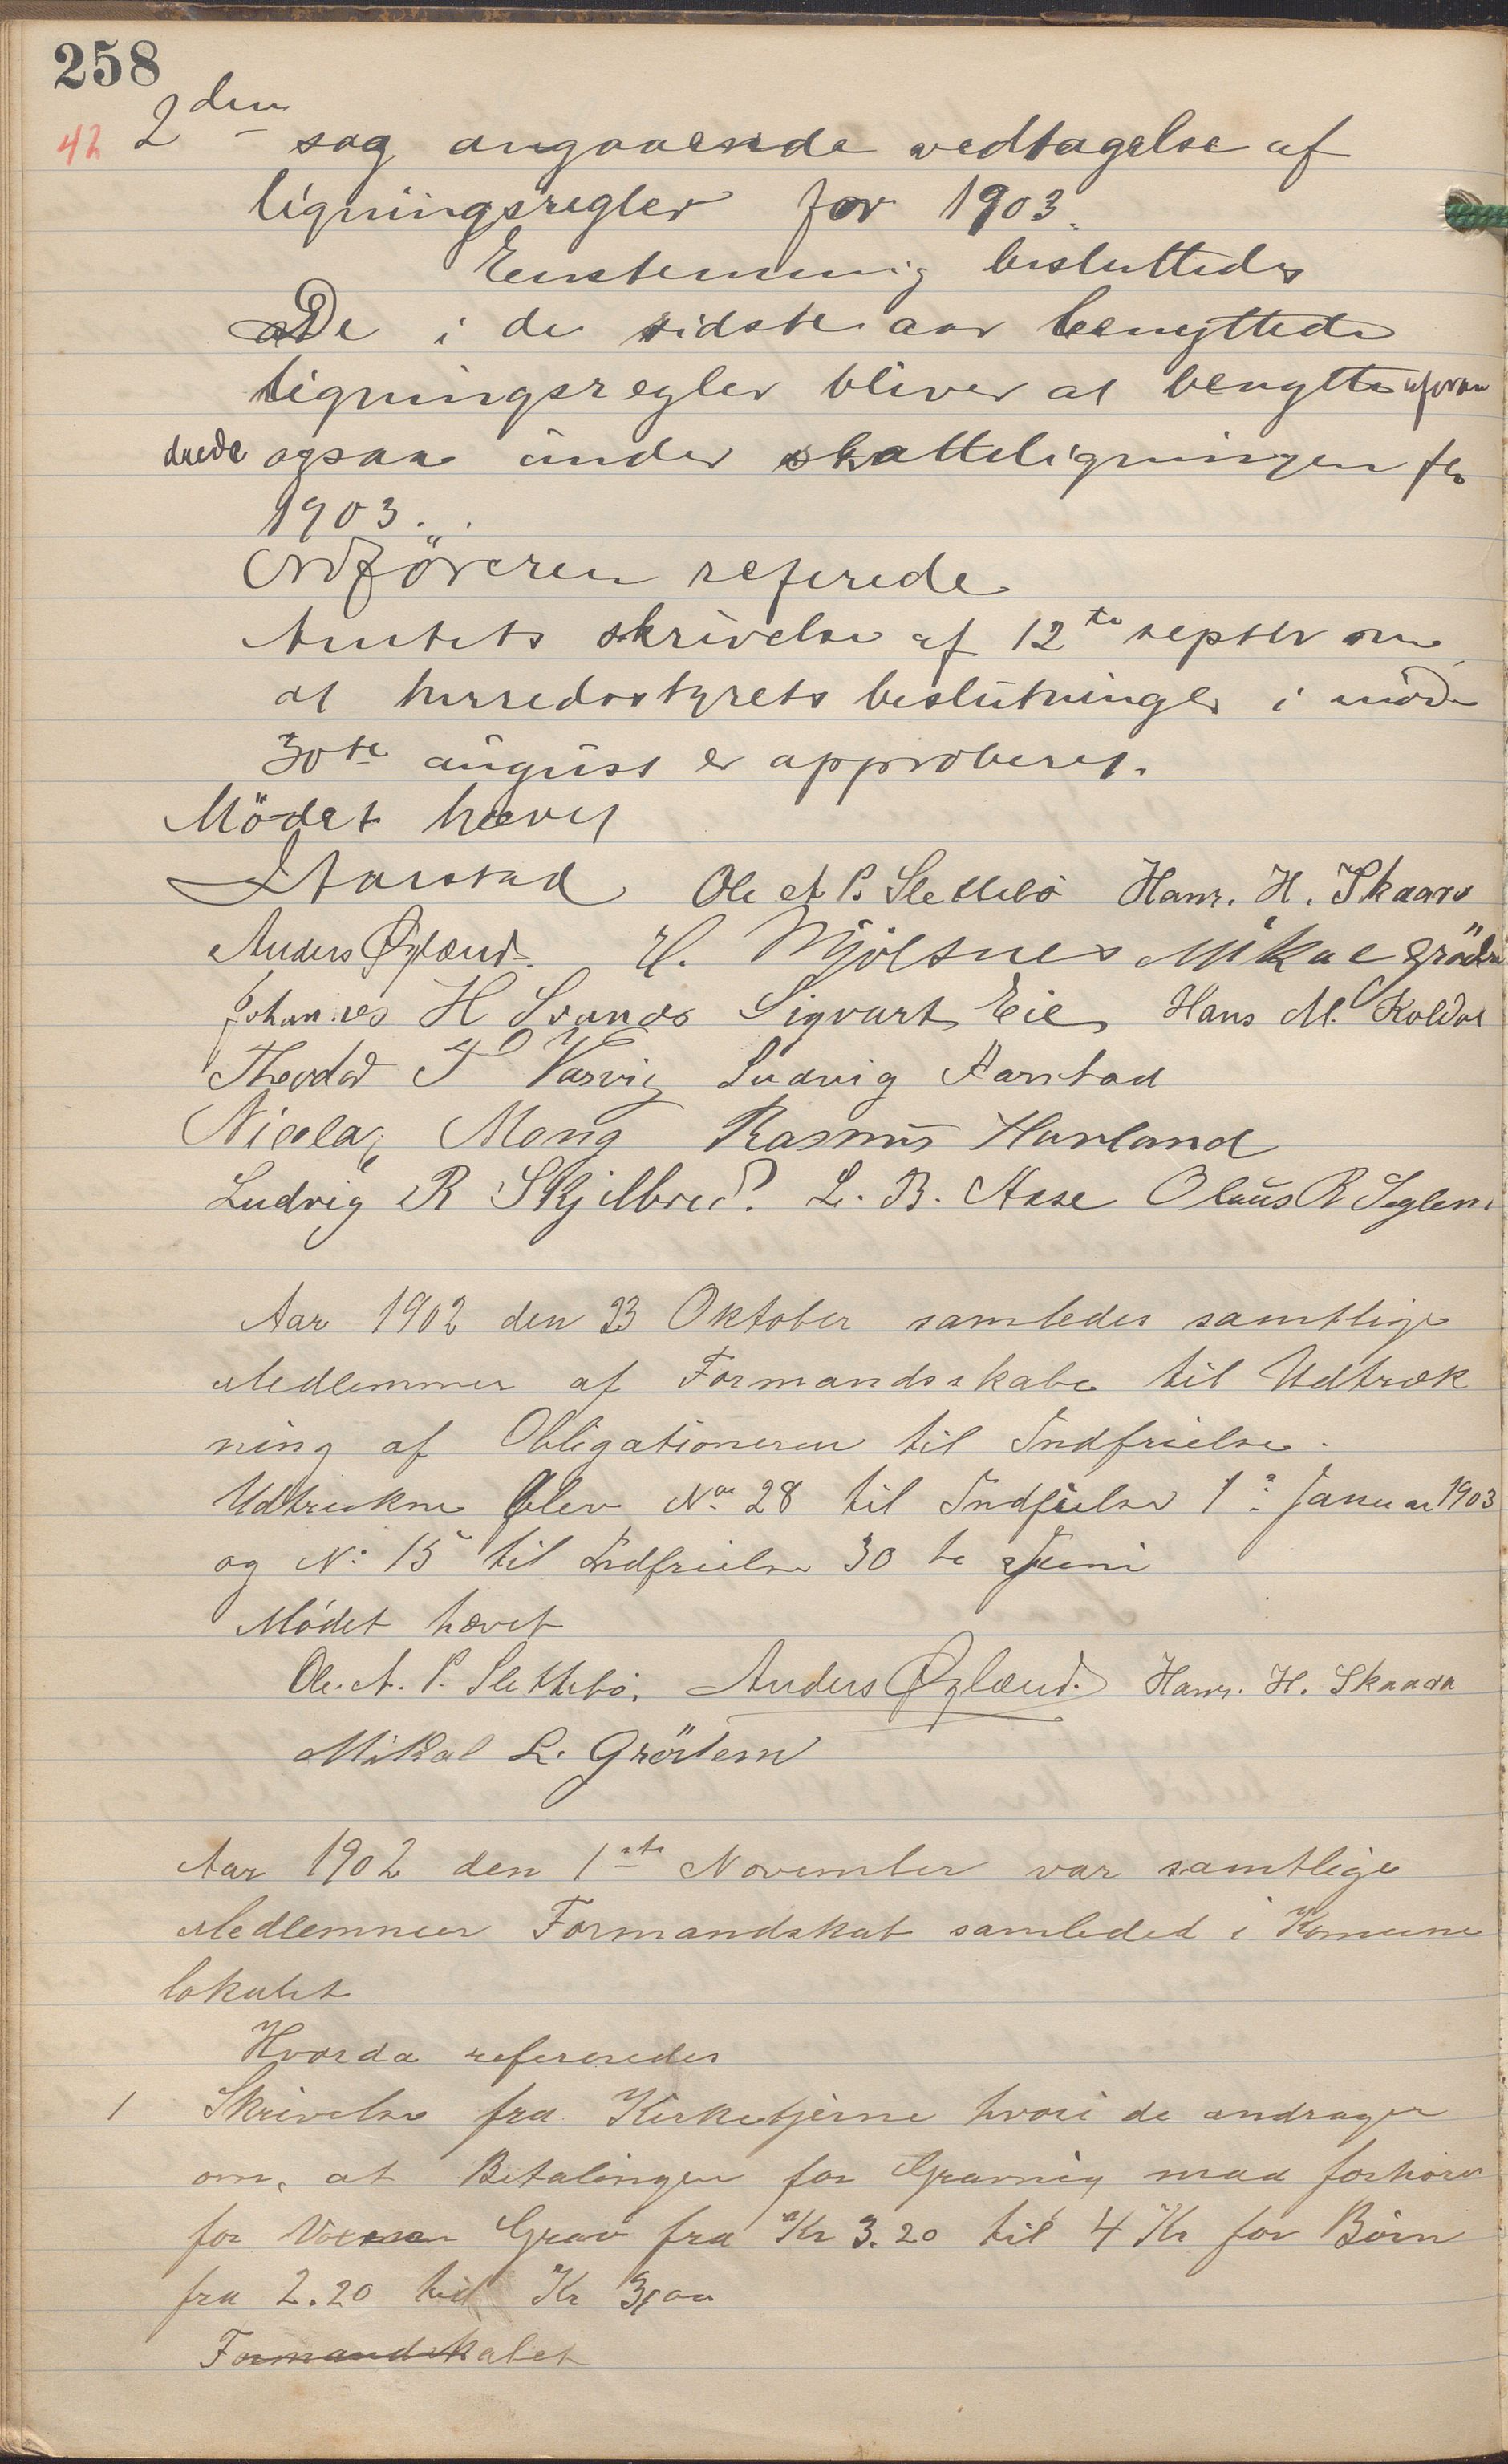 258
42 2den sag angaaende vedtagelse af
ligningsregler for 1903.
Enstemmig besluttedes
De i de sidste aar benyttede
ligningsregler bliver at benytte uforan
drede ogsaa under skatteligningen for
1903.
Ordföreren refererede
Amtets skrivelse af 12te septbr om
at herredsstyrets beslutninger i möde
30te august er approberet.
Mödet hævet
Aarstad Ole A. P. Slettebö Hans. H. Skaara
Anders Øgland. H. Mjölsnes Mikal Grödem
Johannes H Svanes Sigvart Eie Hans M. Koldal
Theodor T Varvig Ludvig Aarstad
Nicolay Mong Rasmus Havland
Ludvig R Skjelbred. L. B. Aase Olaus R Seglem
Aar 1902 den 23 Oktober samledes samtlige
Medlemmer af Formandsskabe til Udtræk
ning af Obligationeren til Indfrielse.
Udtrukne blev No 28 til Indfielse 1: Januar 1903
og No 15 til Indfrielse 30 te Juni
Mödet hævet
Ole. A. P. Slettebö. Anders Øglænd. Hans. H. Skaada
Mikal L. Grödem
Aar 1902 den 1ste November var samtlige
Medlemmer Formandskab samleded i Komune
lokalet
Hvorda refereredes
1 Skrivelse fra Kirketjerne hvori de andrager
om, at Betalingen for Gravnig maa forhöies
for Voxsen Grav fra Kr 3.20 til 4 Kr for Börn
fra 2.20 til Kr 3,00
Formandskabet